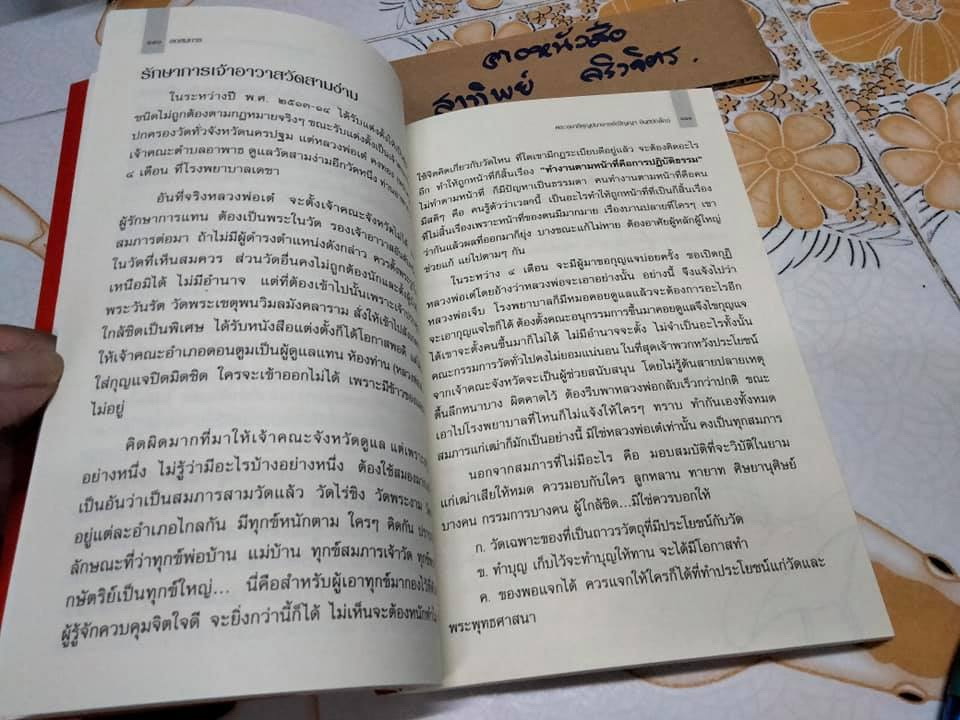 ลงหนังสือ
สาทิพย์ ศิริวจิตร.
๑๑๐ ลดสมภาร
รักษาการเจ้าอาวาสวัดสามง่าม
ในระหว่างปี พ.ศ. ๒๕๑๓-๑๔ ได้รับแต่งตั้งให้เป็น
ชนิดไม่ถูกต้องตามกฎหมายจริงๆ ขณะรับแต่งตั้งเป็นเจ้า
ปกครองวัดทั่วจังหวัดนครปฐม แต่หลวงพ่อเต๋ คงทอง
เจ้าคณะตำบลอาพาธ ดูแลวัดสามง่ามอีกวัดหนึ่ง ท่านอาพาธ
๔ เดือน ที่โรงพยาบาลเดชา
อันที่จริงหลวงพ่อเต๋ จะตั้งเจ้าคณะจังหวัดไม่ได้
ผู้รักษาการแทน ต้องเป็นพระในวัด รองเจ้าอาวาส
สมภารต่อมา ถ้าไม่มีผู้ดำรงตำแหน่งดังกล่าว ควรตั้งพระ
ในวัดที่เห็นสมควร ส่วนวัดอื่นคงไม่ถูกต้องนักและตั้งผู้
เหนือมิได้ ไม่มีอำนาจ แต่ที่ต้องเข้าไปนั้นเพราะเจ้าประ
พระวันรัต วัดพระเชตุพนวิมลมังคลาราม สั่งให้เข้าไป
ใกล้ชิดเป็นพิเศษ ได้รับหนังสือแต่งตั้งก็ได้โอกาสพอดี
ให้เจ้าคณะอำเภอดอนตูมเป็นผู้ดูแลแทน ห้องท่าน (หลวง
ใส่กุญแจปิดมิดชิด ใครจะเข้าออกไม่ได้ เพราะมีข้าวของ
ไม่อยู่
คิดผิดมากที่มาให้เจ้าคณะจังหวัดดูแล แต่เพราะ
อย่างหนึ่ง ไม่รู้ว่ามีอะไรบ้างอย่างหนึ่ง ต้องใช้สมอง
เป็นอันว่าเป็นสมภารสามวัดแล้ว วัดไร่ขิง วัดพระงาม
อยู่แต่ละอำเภอไกลกัน มีทุกข์หนักตาม ใครๆ คิดกัน
ลักษณะที่ว่าทุกข์พ่อบ้าน แม่บ้าน ทุกข์สมภารเจ้าวัด ทุกข์
กษัตริย์เป็นทุกข์ใหญ่... นี่คือสำหรับผู้เอาทุกข์มากองไว้
ผู้รู้จักควบคุมจิตใจดี จะยิ่งกว่านี้ก็ได้ ไม่เห็นจะต้องหนัก
๑๑๑
ใช้จิตคิดเกี่ยวกับวัดไหน ที่ใดเขามีกฎระเบียบดีอยู่แล้ว จะต้องคิดอะไร
อีก ทำให้ถูกหน้าที่ก็สิ้นเรื่อง "ทำงานตามหน้าที่คือการปฏิบัติธรรม"
ไม่ทำตามหน้าที่ ก็มีปัญหาเป็นธรรมดา คนทำงานตามหน้าที่คือคน
มีสติๆ คือ คนรู้ตัวว่าเวลานี้ เป็นอะไรทำให้ถูกหน้าที่ที่เป็นก็สิ้นเรื่อง
ที่ไม่สิ้นเรื่องเพราะหน้าที่ของตนมีมากมาย เรื่องบานปลายที่ใครๆ เขา
ว่ากันแล้วผลที่ออกมาก็ยุ่ง บางขณะแก้ไม่หาย ต้องอาศัยผู้หลักผู้ใหญ่
ช่วยแก้ แย่ไปตามๆ กัน
ในระหว่าง ๔ เดือน จะมีผู้มาขอกุญแจบ่อยครั้ง ขอเปิดกุฏิ
หลวงพ่อเต๋โดยอ้างว่าหลวงพ่อจะเอาอย่างนั้น อย่างนี้ จึงแจ้งไปว่า
หลวงพ่อเจ็บ โรงพยาบาลก็มีหมอคอยดูแลแล้วจะต้องการอะไรอีก
จะเอากุญแจไขก็ได้ ต้องตั้งคณะอนุกรรมการขึ้นมาคอยดูแลจึงไขกุญแจ
ได้เขาจะตั้งคนขึ้นมาก็ไม่ได้ ไม่มีอำนาจจะตั้ง ไม่จำเป็นอะไรทั้งนั้น
คณะกรรมการวัดทั่วไปคงไม่ยอมแน่นอน ในที่สุดเจ้าพวกหวังประโยชน์
จากเจ้าคณะจังหวัดจะเป็นผู้ช่วยสนับสนุน โดยไม่รู้ต้นสายปลายเหตุ
ตื้นลึกหนาบาง ผิดคาดไว้ ต้องรีบพาหลวงพ่อกลับเร็วกว่าปกติ ขณะ
เอาไปโรงพยาบาลที่ไหนก็ไม่แจ้งให้ใครๆ ทราบ ทำกันเองทั้งหมด
สมภารแก่เฒ่าก็มักเป็นอย่างนี้ มิใช่หลวงพ่อเต๋เท่านั้น คงเป็นทุกสมภาร
นอกจากสมภารที่ไม่มีอะไร คือ มอบสมบัติที่จะวิบัติในยาม
แก่เฒ่าเสียให้หมด ควรมอบกับใคร ลูกหลาน ทายาท ศิษยานุศิษย์
บางคน กรรมการบางคน ผู้ใกล้ชิด...มิใช่ควรบอกให้
ก. วัดเฉพาะของที่เป็นถาวรวัตถุที่มีประโยชน์กับวัด
ข. ทำบุญ เก็บไว้จะทำบุญให้ทาน จะได้มีโอกาสทำ
ค. ของพอแจกได้ ควรแจกให้ใครก็ได้ที่ทำประโยชน์แก่วัดและ
พระพุทธศาสนา